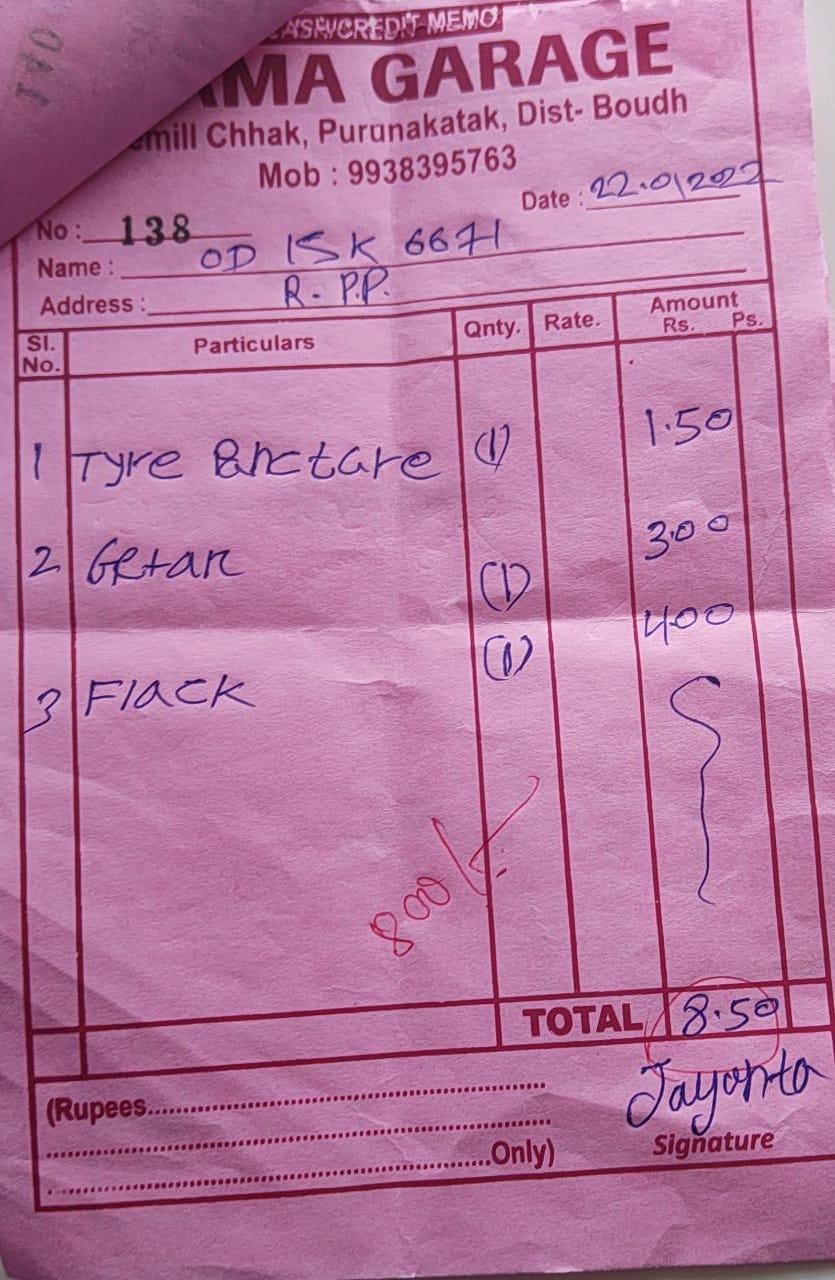 CASH/CREDIT MEMO
AMA GARAGE
emill Chhak, Purunakatak, Dist- Boudh
Mob : 9938395763
Date : 22.012022
No : 138
Name : OD 15K 6671
Address : R. P.P.
Sl. No. Particulars Qnty. Rate. Amount Rs. Ps.
1 Tyre Pnctare (1) 1.50
2 Getar (1) 3.00
3 Flack (1) 400
800/-
TOTAL 8.50
Jayonta
(Rupees
Signature
Only)